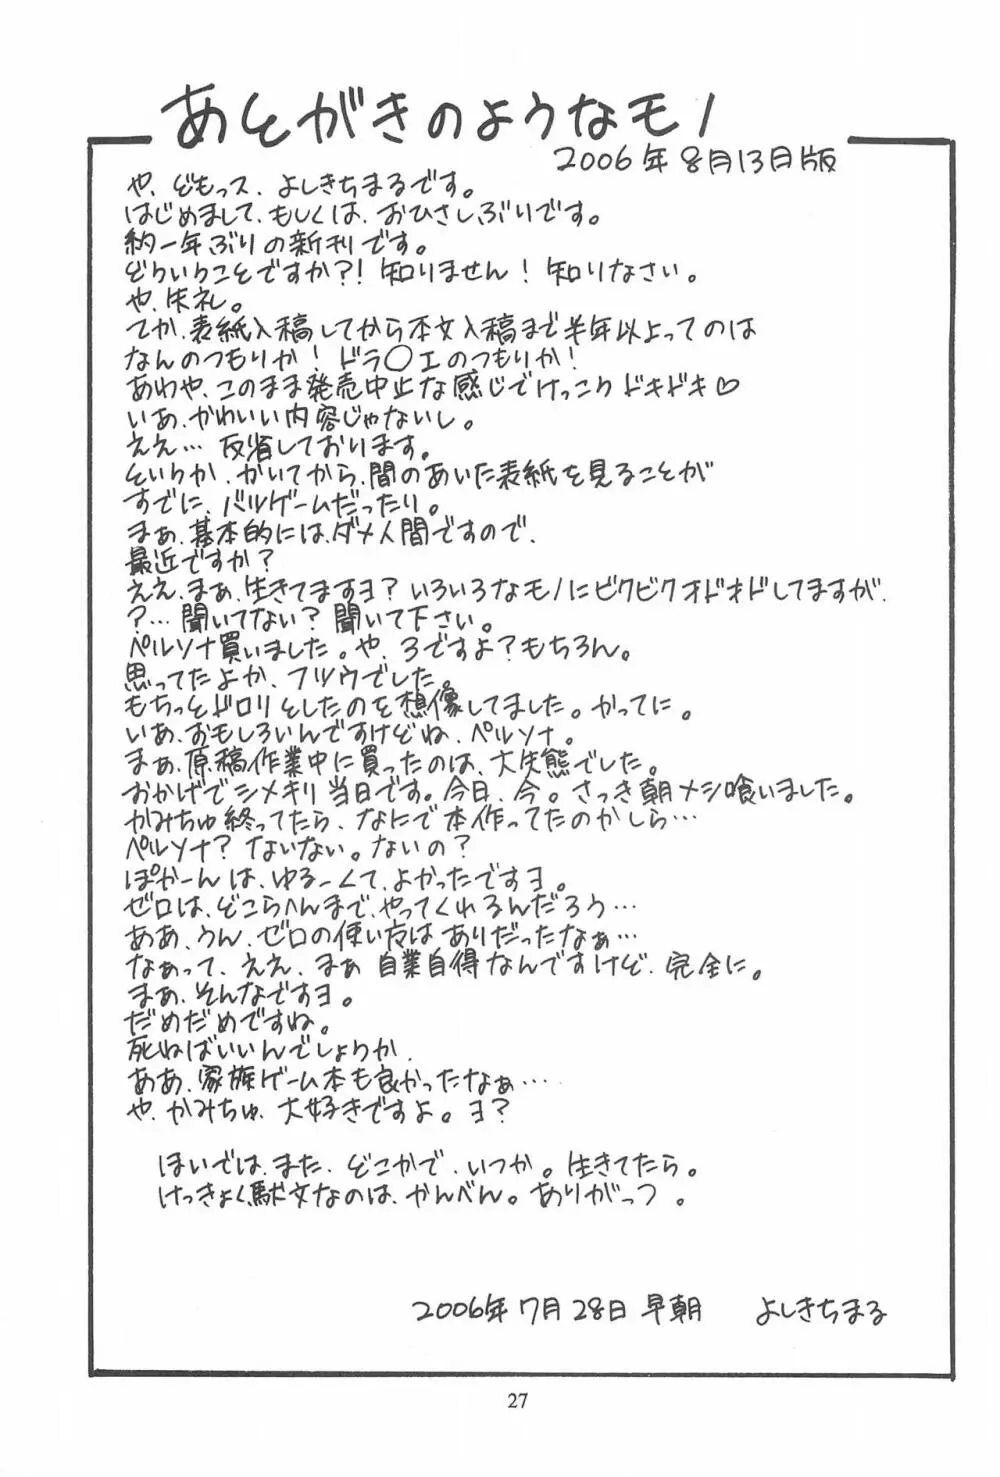 あとがきのようなモノ
2006年8月13日版
や、どもっス、よしきちまるです。
はじめまして、もしくは、おひさしぶりです。
約一年ぶりの新刊です。
どういうことですか?! 知りません! 知りなさい。
や、失礼。
てか、表紙入稿してから本文入稿まで半年以上ってのは
なんのつもりか! ドラ〇エのつもりか!
あわや、このまま発売中止な感じでけっこうドキドキ♡
いあ、かわいい内容じゃないし。
ええ… 反省しております。
というか、かいてから、間のあいた表紙を見ることが
すでに、バツゲームだったり。
まぁ、基本的には、ダメ人間ですので、
最近ですか?
ええ、まぁ、生きてますヨ? いろいろなモノにビクビクオドオドしてますが、
?… 聞いてない? 聞いて下さい。
ペルソナ買いました。や、3ですよ? もちろん。
思ってたよか、フツウでした。
もちっとドロリとしたのを想像してました。かってに。
いあ、おもしろいんですけどね、ペルソナ。
まぁ、原稿作業中に買ったのは、大失態でした。
おかげでシメキリ当日です。今日、今。さっき朝メシ喰いました。
かみちゅ終ってたら、なにで本作ってたのかしら…
ペルソナ? ないない。ないの?
ぽかーんは、ゆるーくて、よかったですヨ。
ゼロは、どこらへんまで、やってくれるんだろう…
ああ、うん、ゼロの使い方は ありだったなぁ…
なぁって、ええ、まぁ 自業自得なんですけど、完全に。
まぁ、そんなですヨ。
だめだめですね。
死ねばいいんでしょうか、
ああ、家族ゲーム本も良かったなぁ…
や、かみちゅ、大好きですよ。ヨ?
ほいでは、また、どこかで、いつか。生きてたら。
けっきょく駄文なのは、かんべん。ありがっつ。
2006年7月28日 早朝 よしきちまる
27